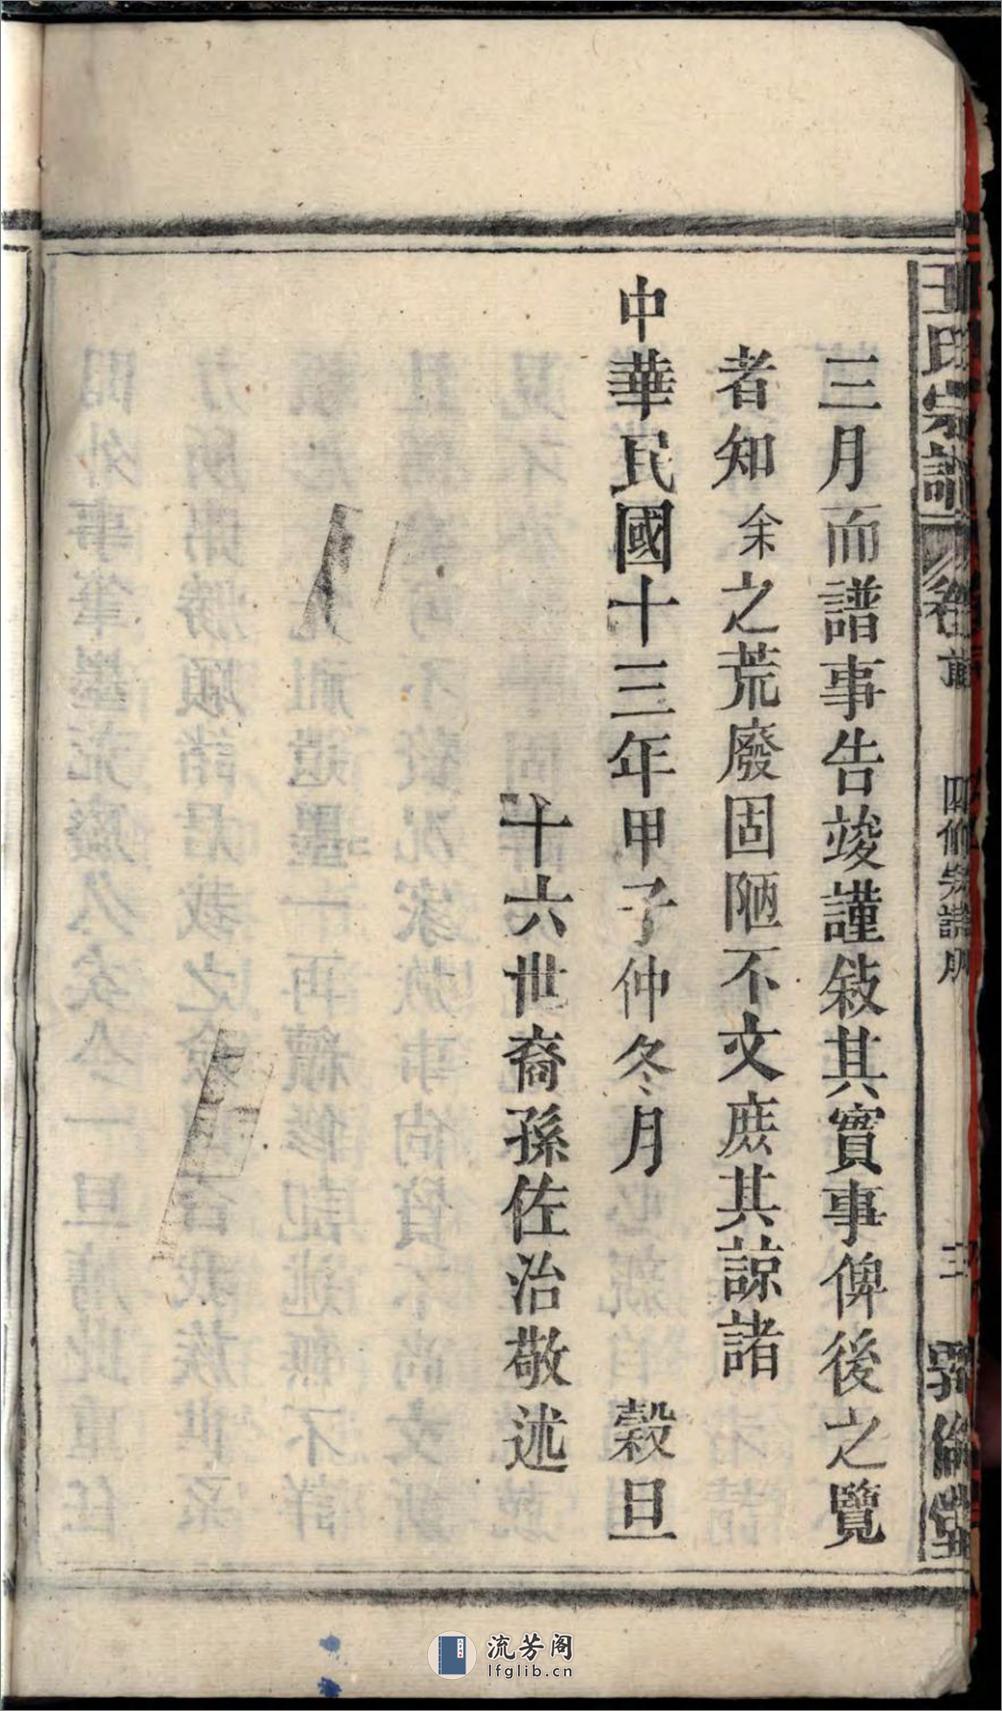 三月而譜事告竣謹敍其實事俾後之覽
者知余之荒廢固陋不文庶其諒諸
中華民國十三年甲子仲冬月 穀旦
十六世裔孫佐治敬述
王氏宗譜 卷首
三
流芳阁
lfglib.cn